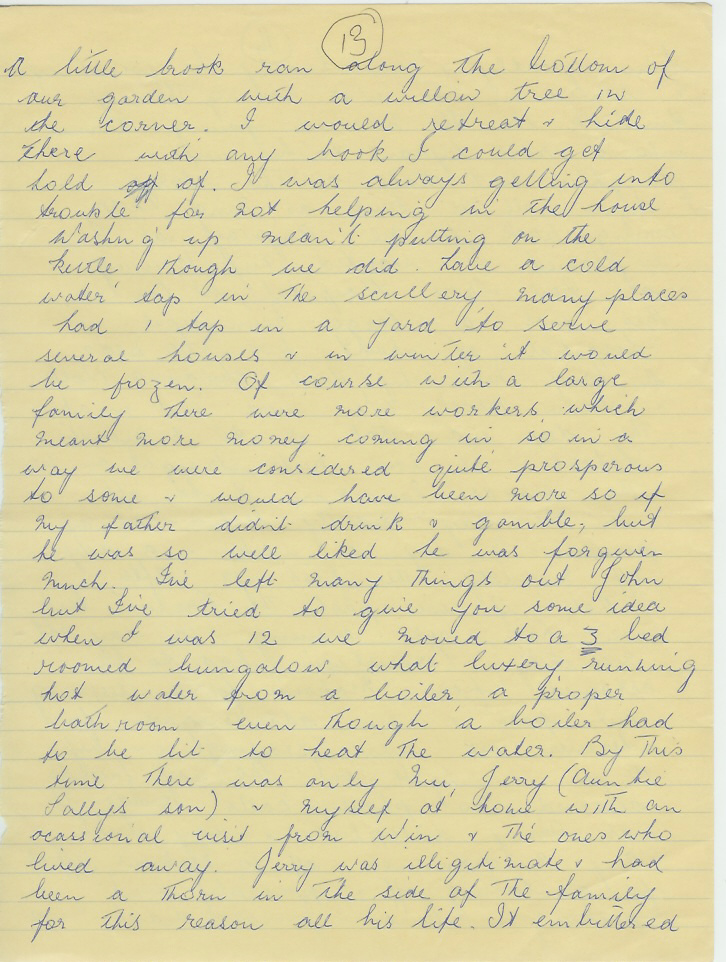 13
A little brook ran along the bottom of
our garden with a willow tree in
the corner. I would retreat & hide
there with any book I could get
hold off of. I was always getting into
trouble for not helping in the house
Washng up mean't putting on the
kettle though we did. have a cold
water tap in the scullery many places
had 1 tap in a yard to serve
several houses & in winter it would
be frozen. Of course with a large
family there were more workers which
meant more money coming in so in a
way we were considered quite prosperous
to some & would have been more so if
my father didn't drink & gamble, but
he was so well liked he was forgiven
much. I've left many things out John
but I've tried to give you some idea
when I was 12 we moved to a 3 bed
roomed bungalow what luxery running
hot water from a boiler a proper
bathroom even though a boiler had
to be lit to heat the water. By this
time there was only Mu, Jerry (Auntie
Sallys son) & myself at home with an
ocassional visit from Win & the ones who
lived away. Jerry was illigitimate & had
been a thorn in the side of the family
for this reason all his life. It embittered